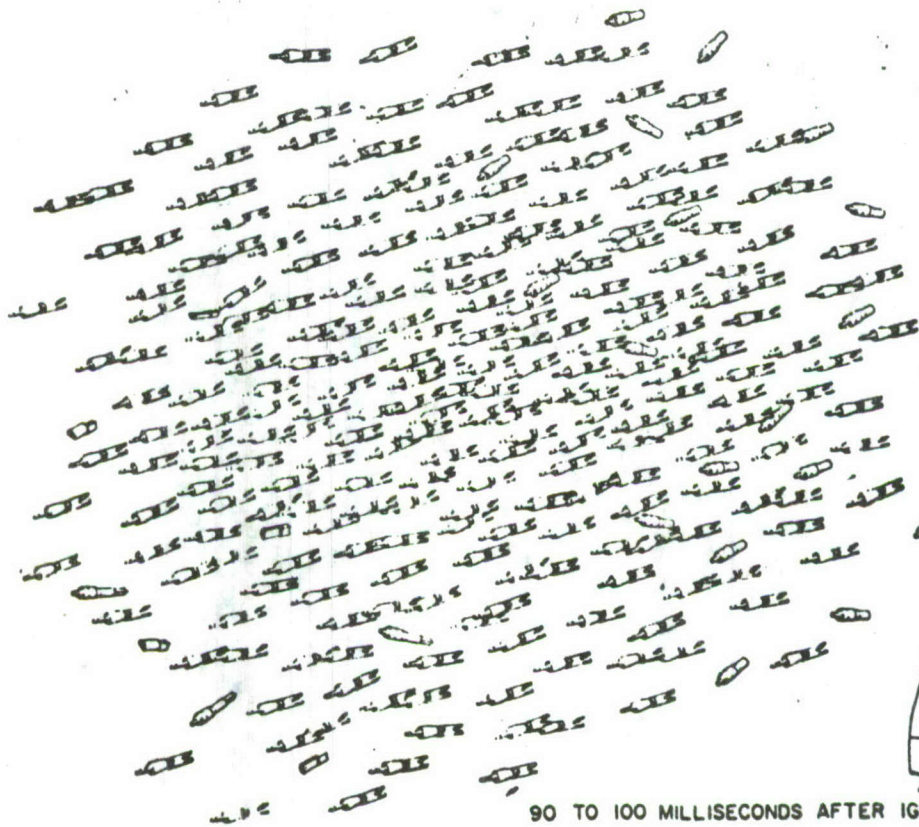 90 TO 100 MILLISECONDS AFTER